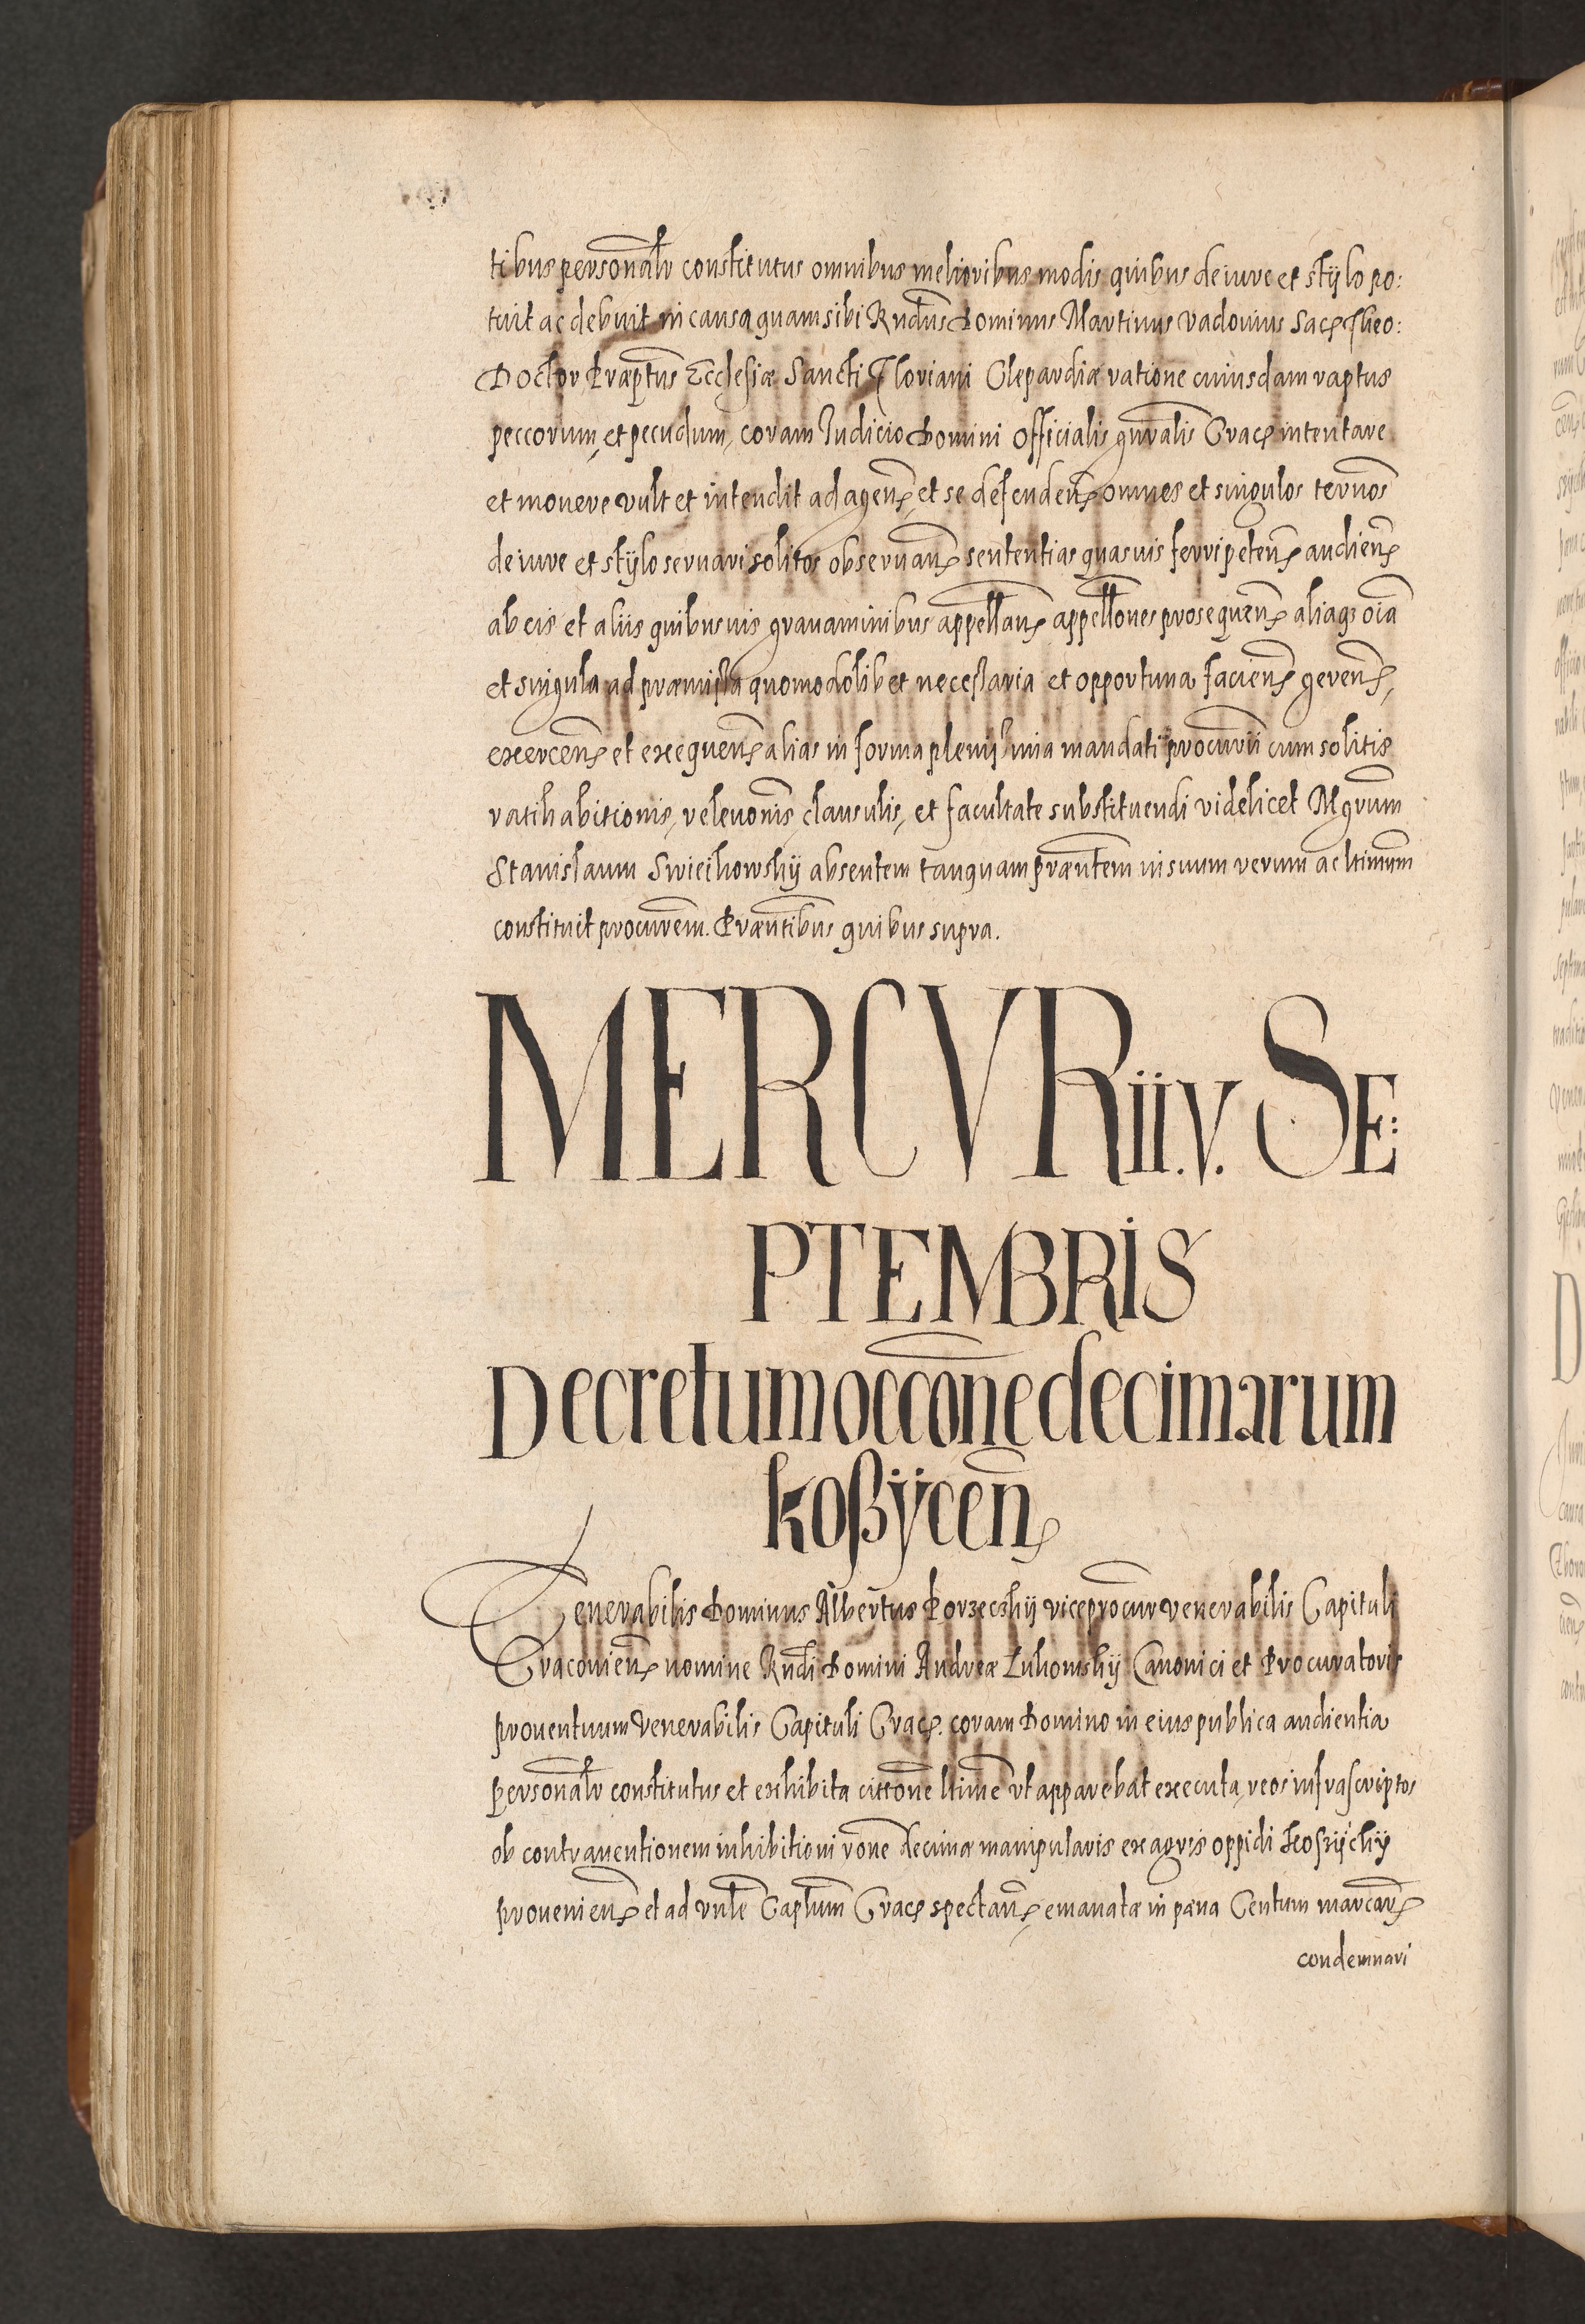 tibus personalr constitutus omnibus melioribus modis quibus de iure et stÿlo po:
tuit ac debuit in causa quam sibi Rndus Dominus Martinus Vadovius Sacę Theo:
Doctor Præptus Ecclesiæ Sancti Floriani Clepardiæ ratione cuiusdam raptus
peccorum, et pecudum, coram Iudicio Domini Officialis gnralis Cracę intentare
et movere vult et intendit ad agenę, et se defendenę omnes et singulos termos
de iure et stÿlo servari solitos observanę sententias quasvis ferri petenę audienę
ab eis et aliis quibusvis gravaminibus appellanę appellones prosequenę aliaqꝫ oia
et singula ad præmissa quomodolibet necessaria et opportuna facienę gerenę,
exercenę et exequenę alias in forma plenissima mandati procurii cum solitis
ratihabitionis, relevonis, clausulis, et facultate substituendi videlicet Mgrum
Stanislaum Swieihowskÿ absentem tanquam præntem in suum verum ac ltimum
constituit procurem. Præntibus quibus supra.
MERCVRii.V. SE:
PTEMBRIS
Decretum occone decimarum
koßÿcenę
Venerabilis Dominus Albertus Porzeckÿ viceprocur venerabilis Capituli
Cracovienę nomine Rndi Domini Andreæ Lukomskÿ Canonici et Procuratoris
proventuum Venerabilis Capituli Cracę. coram Domino in eius publica audientia
personalr constitutus et exhibita cittone ltime ut apparebat executa, reos infrascriptos
ob contraventionem inhibitioni rone decimæ manipularis ex agris oppidi Koszÿckÿ
provenienę et ad vnle Caplum Cracę spectanę, emanatæ in pæna Centum marcarę
condemnari